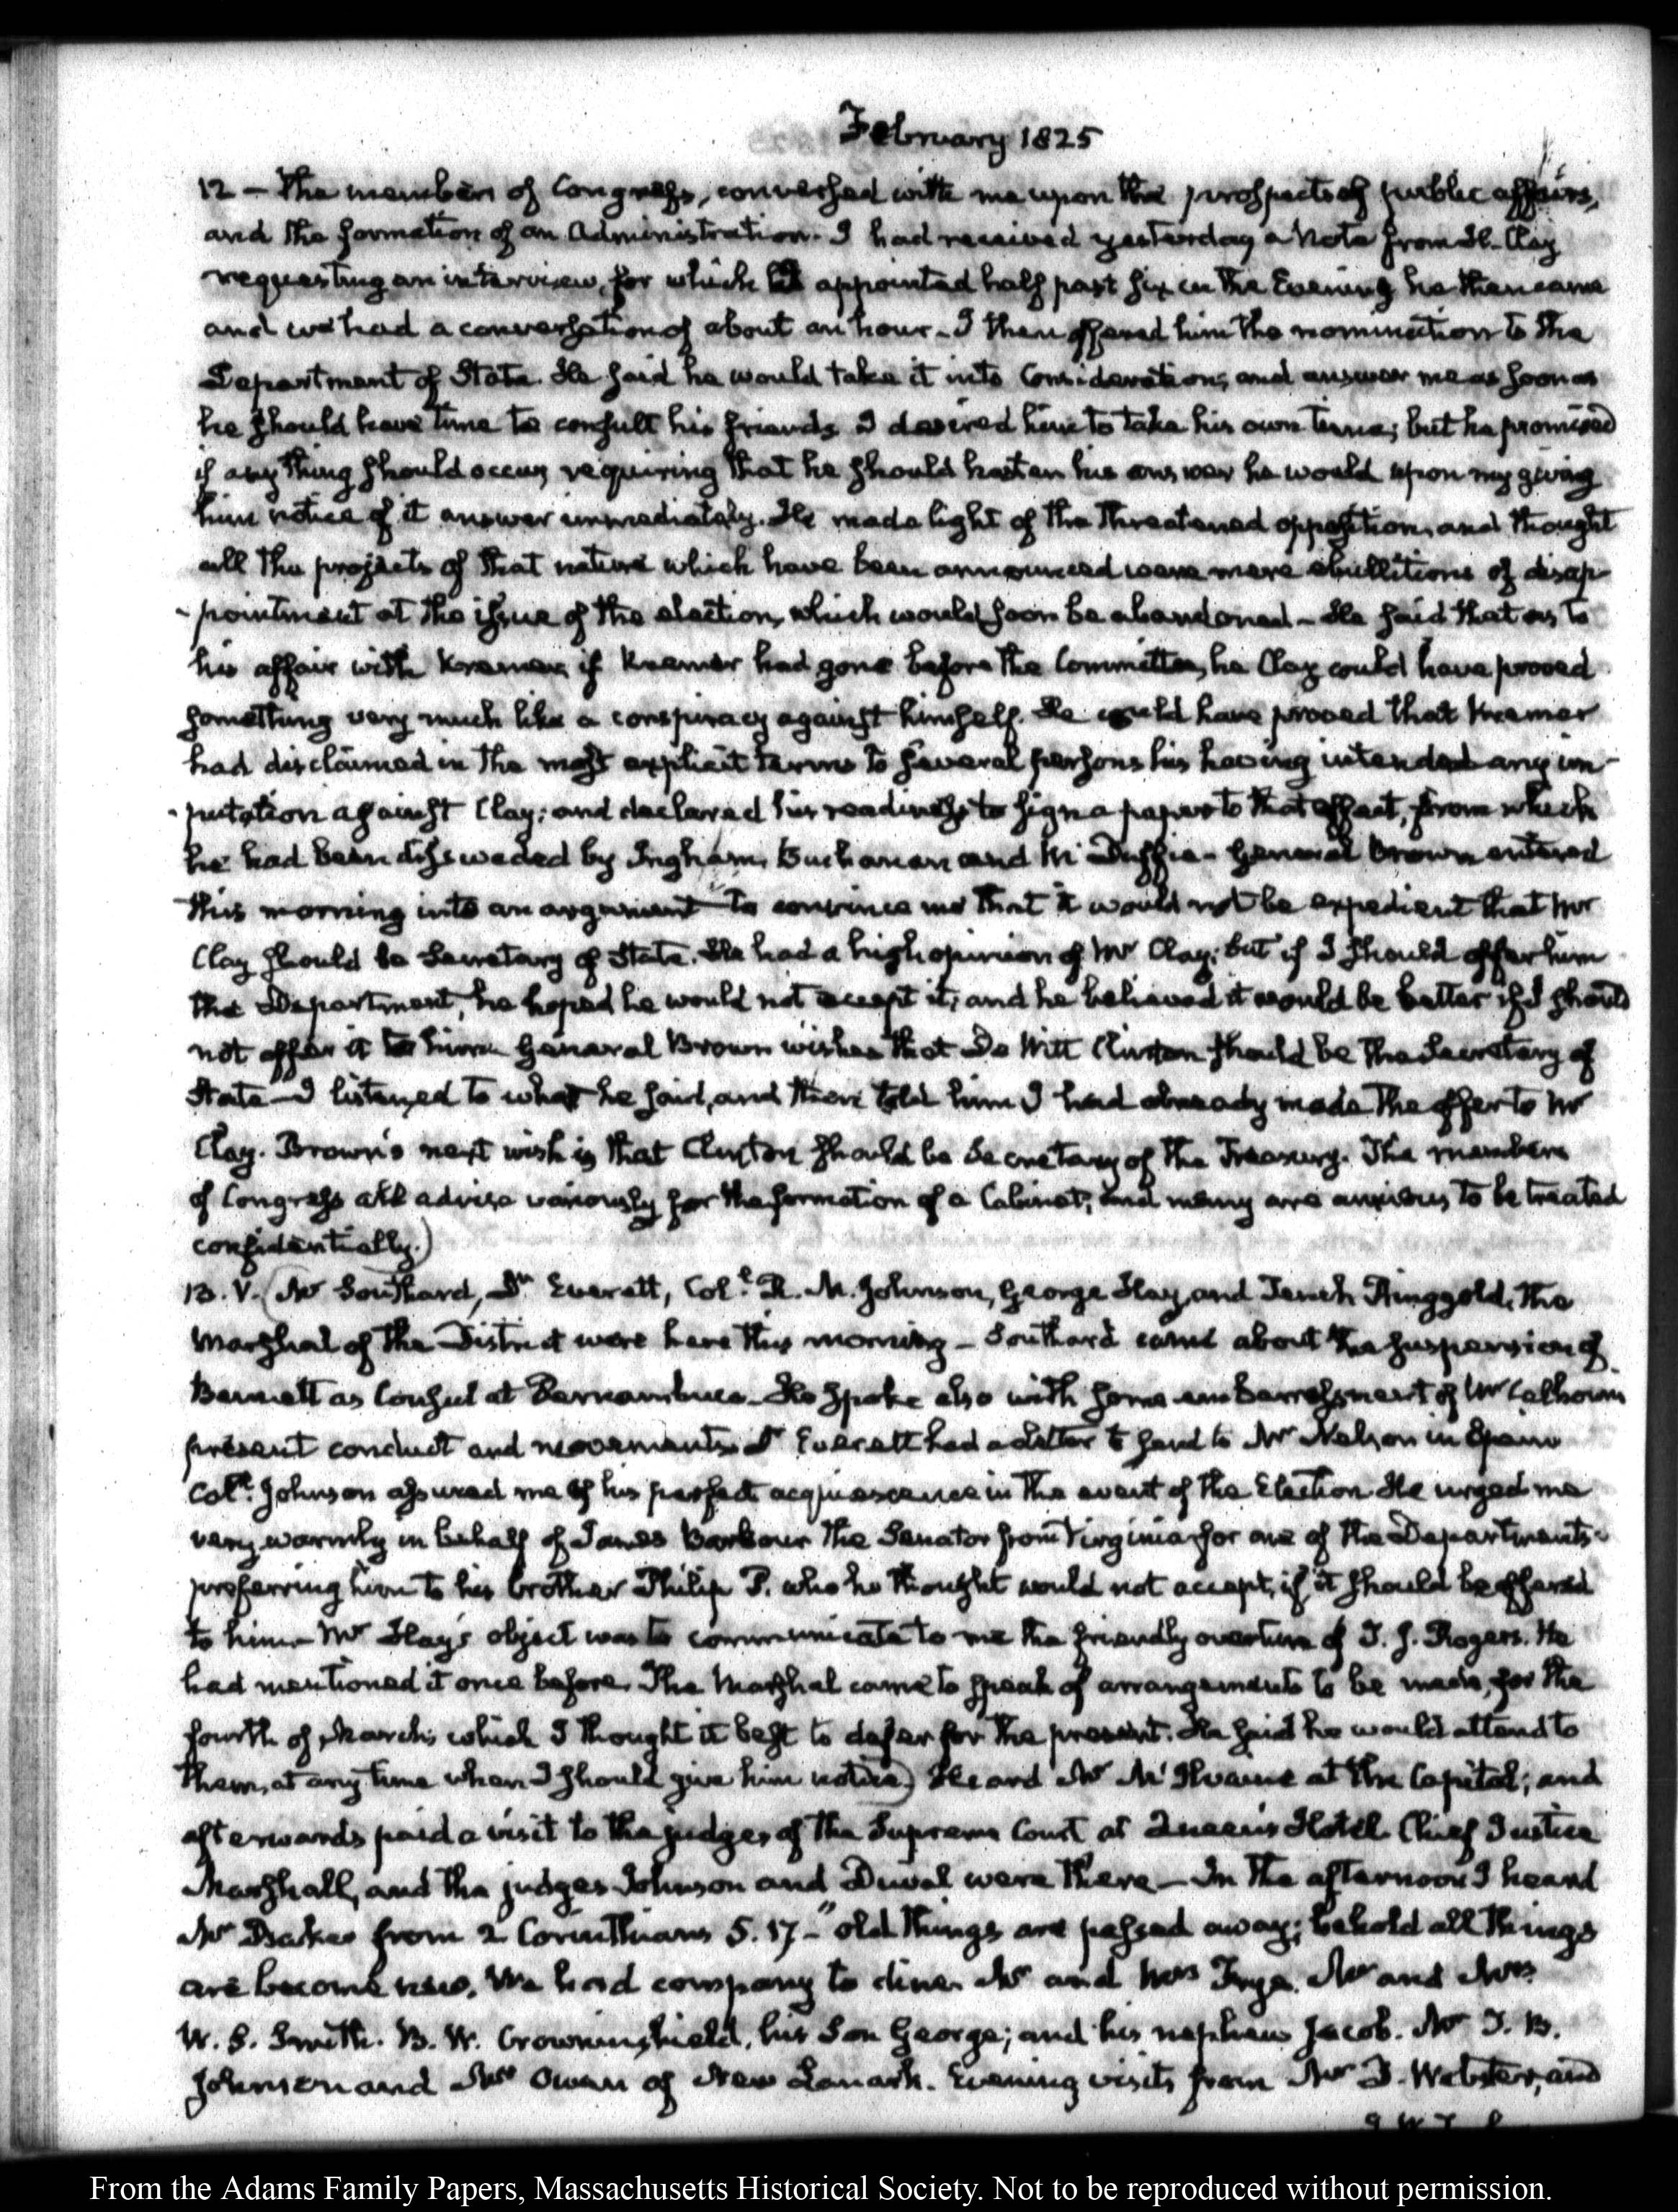 February 1825
12 – The members of Congress, conversed with me upon the prospects of public affairs,
and the formation of an Administration. I had received yesterday a Note from H. Clay
requesting an interview, for which I appointed half past six in the Evening he then came
and we had a conversation of about an hour – I then offered him the nomination to the
Department of State. He said he would take it into Consideration, and answer me as soon as
he should have time to consult his friends. I desired him to take his own time; but he promised
if any thing should occur, requiring that he should hasten his answer he would upon my giving
him notice of it answer immediately. He made light of the threatened opposition, and thought
all the projects of that nature which have been announced were mere ebullitions of disap-
-pointment at the issue of the election, which would soon be abandoned – He said that as to
his affair with Kremer, if Kremer had gone before the Committee, he Clay could have proved
something very much like a conspiracy against himself. He could have proved that Kremer
had disclaimed in the most explicit terms to several persons his having intended any im-
-putation against Clay; and declared his readiness to sign a paper to that effect, from which
he had been dissuaded by Ingham, Buchanan and Mc Duffie – General Brown entered
this morning into an argument to convince me that it would not be expedient that Mr
Clay should be Secretary of State. He had a high opinion of Mr Clay; but if I should offer him
the Department, he hoped he would not accept it; and he believed it would be better if I should
not offer it to him. General Brown wishes that De Witt Clinton should be the Secretary of
State – I listened to what he said, and then told him I had already made the offer to Mr
Clay. Brown's next wish is that Clinton should be Secretary of the Treasury. The members
of Congress all advise variously for the formation of a Cabinet; and many are anxious to be treated
confidentially.)
13. V. (Mr Southard, Dr Everett, Coll. R. M. Johnson, George Hay, and Tench Ringgold, the
Marshal of the District were here this morning – Southard came about the suspension of
Bennett as Consul at Pernambuco – He spoke also with some embarrassment of Mr Calhoun's
present conduct and movements. Dr Everett had a letter to send to Mr Nelson in Spain
Coll. Johnson assured me of his perfect acquiescence in the event of the Election. He urged me
very warmly in behalf of James Barbour the Senator from Virginia for one of the Departments –
preferring him to his brother Philip P. who he thought would not accept, if it should be offered
to him – Mr Hay's object was to communicate to me the friendly overture of T. J. Rogers. He
had mentioned it once before. The Marshal came to speak of arrangements to be made, for the
fourth of March; which I thought it best to defer for the present. He said he would attend to
them, at any time when I should give him notice) Heard Mr McIlvaine at the Capitol; and
afterwards paid a visit to the judges of the Supreme Court at Queen's Hotel. Chief Justice
Marshall, and the judges Johnson and Duval were there – In the afternoon I heard
Mr Baker from 2 Corinthians 5. 17 – "old things are passed away; behold all things
are become new. We had company to dine. Mr and Mrs Frye. Mr and Mrs
W. S. Smith. B. W. Crowninshield, his Son George; and his nephew Jacob. Mr J. B.
Johnson and Mr Owen of New Lanark. Evening visits from Mr D. Webster, and
From the Adams Family Papers, Massachusetts Historical Society. Not to be reproduced without permission.